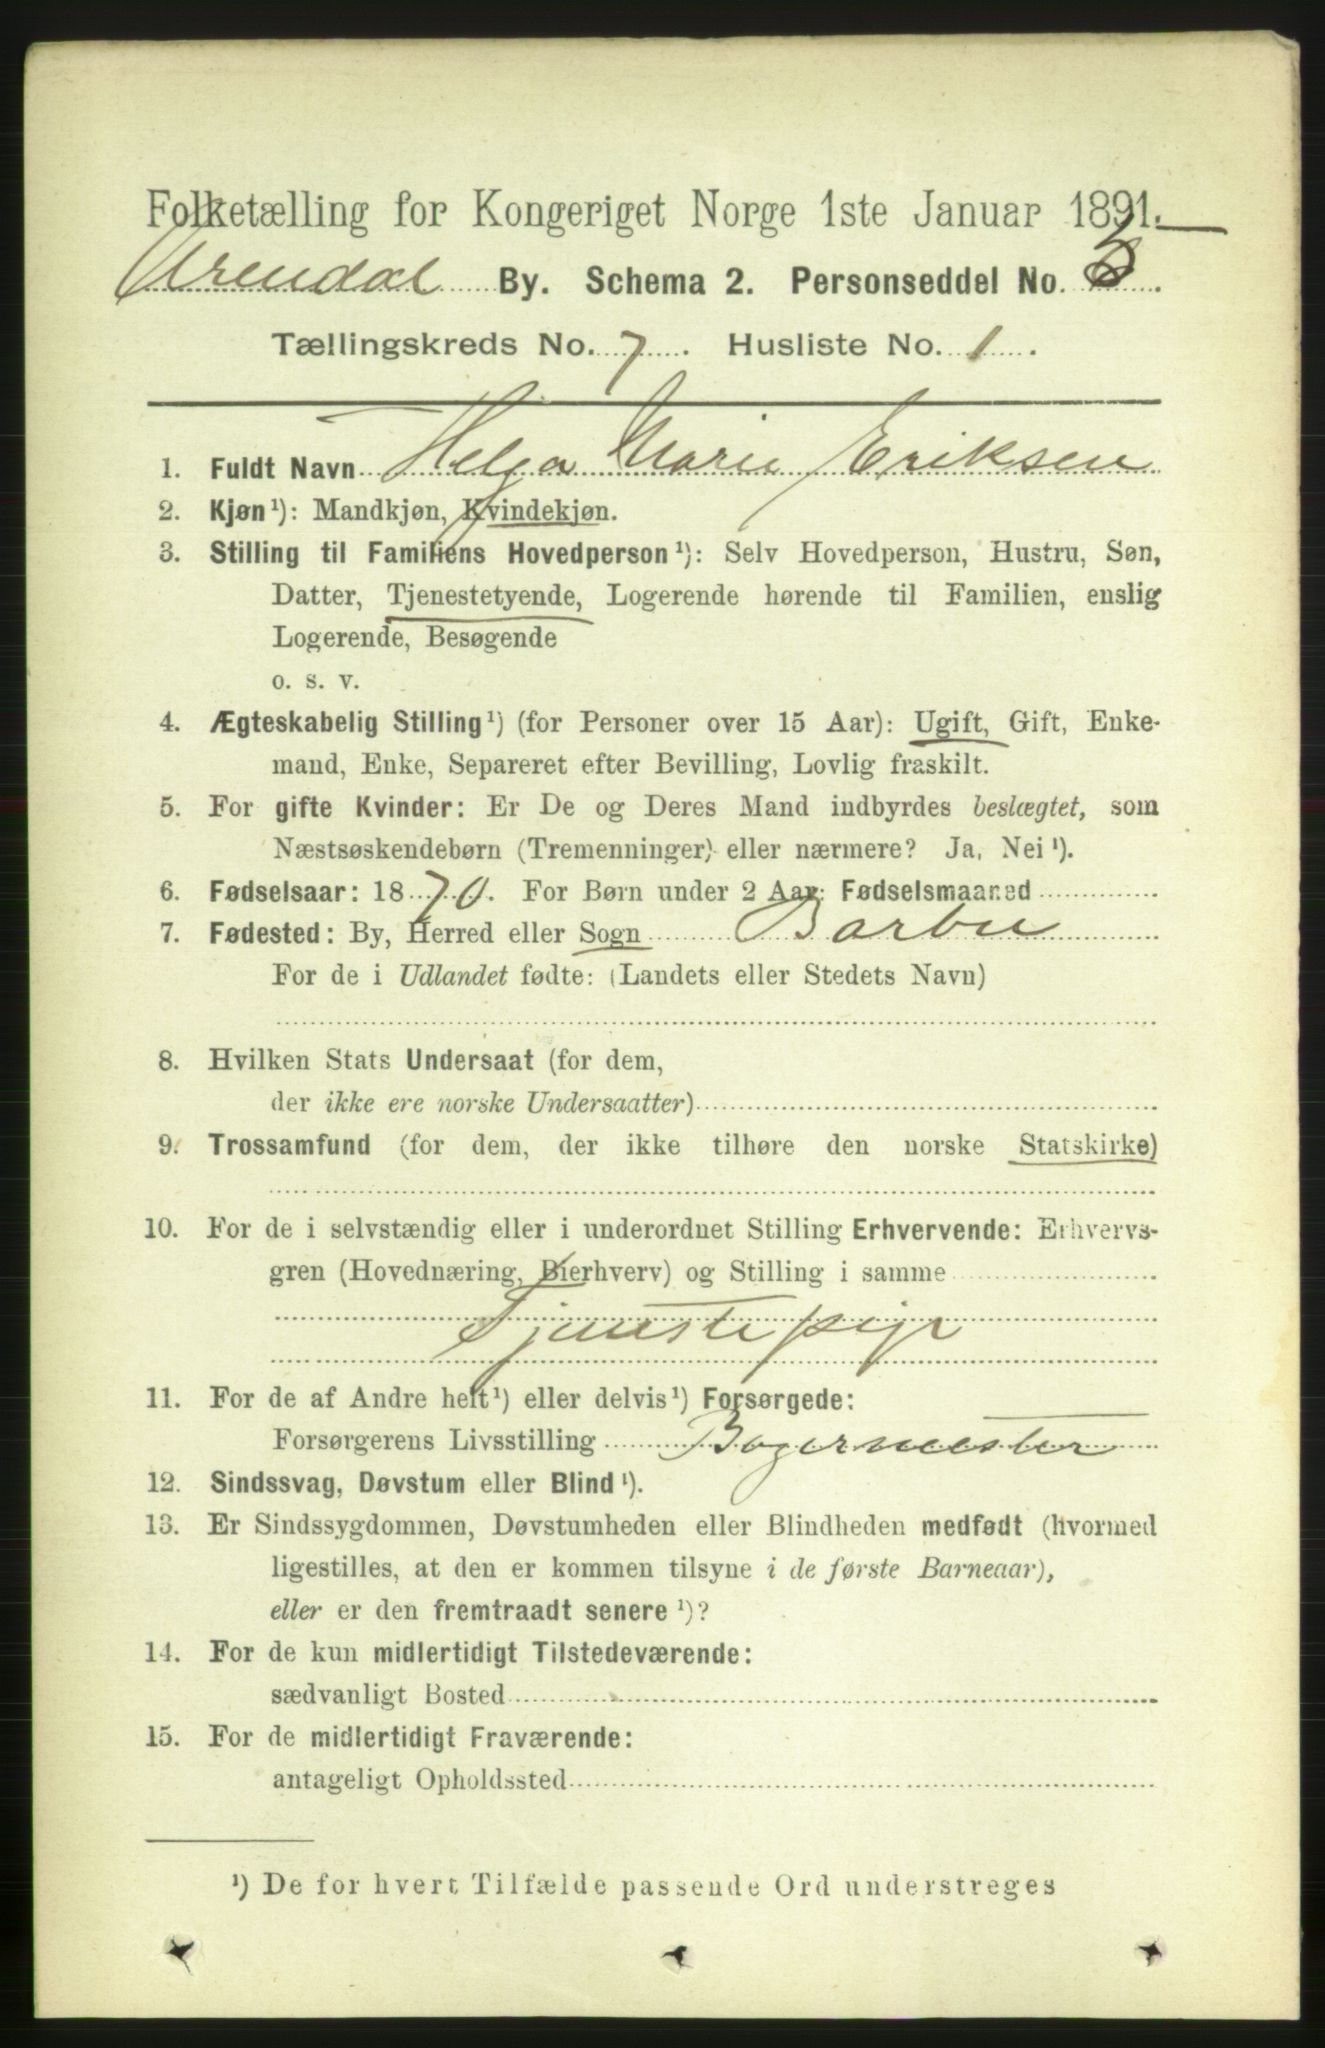 Folketælling for Kongeriget Norge 1ste Januar 1891.
Arendal By. Schema 2. Personseddel No.
Tællingskreds No. 7. Husliste No. 1.
1. Fuldt Navn Helga Marie Eriksen
2. Kjøn¹): Mandkjøn, Kvindekjøn.
3. Stilling til Familiens Hovedperson¹): Selv Hovedperson, Hustru, Søn,
Datter, Tjenestetyende, Logerende hørende til Familien, enslig
Logerende, Besøgende
o. s. v.
4. Ægteskabelig Stilling¹) (for Personer over 15 Aar): Ugift, Gift, Enke-
mand, Enke, Separeret efter Bevilling, Lovlig fraskilt.
5. For gifte Kvinder: Er De og Deres Mand indbyrdes beslægtet, som
Næstsøskendebørn (Tremenninger) eller nærmere? Ja, Nei¹).
6. Fødselsaar: 1870. For Børn under 2 Aar: Fødselsmaaned
7. Fødested: By, Herred eller Sogn Barbu
For de i Udlandet fødte: (Landets eller Stedets Navn)
8. Hvilken Stats Undersaat (for dem,
der ikke ere norske Undersaatter)
9. Trossamfund (for dem, der ikke tilhøre den norske Statskirke)
10. For de i selvstændig eller i underordnet Stilling Erhvervende: Erhvervs-
gren (Hovednæring, Bierhverv) og Stilling i samme
Tjenestepige
11. For de af Andre helt¹) eller delvis¹) Forsørgede:
Forsørgerens Livsstilling Bagermester
12. Sindssvag, Døvstum eller Blind¹).
13. Er Sindssygdommen, Døvstumheden eller Blindheden medfødt (hvormed
ligestilles, at den er kommen tilsyne i de første Barneaar),
eller er den fremtraadt senere¹)?
14. For de kun midlertidigt Tilstedeværende:
sædvanligt Bosted
15. For de midlertidigt Fraværende:
antageligt Opholdssted
¹) De for hvert Tilfælde passende Ord understreges